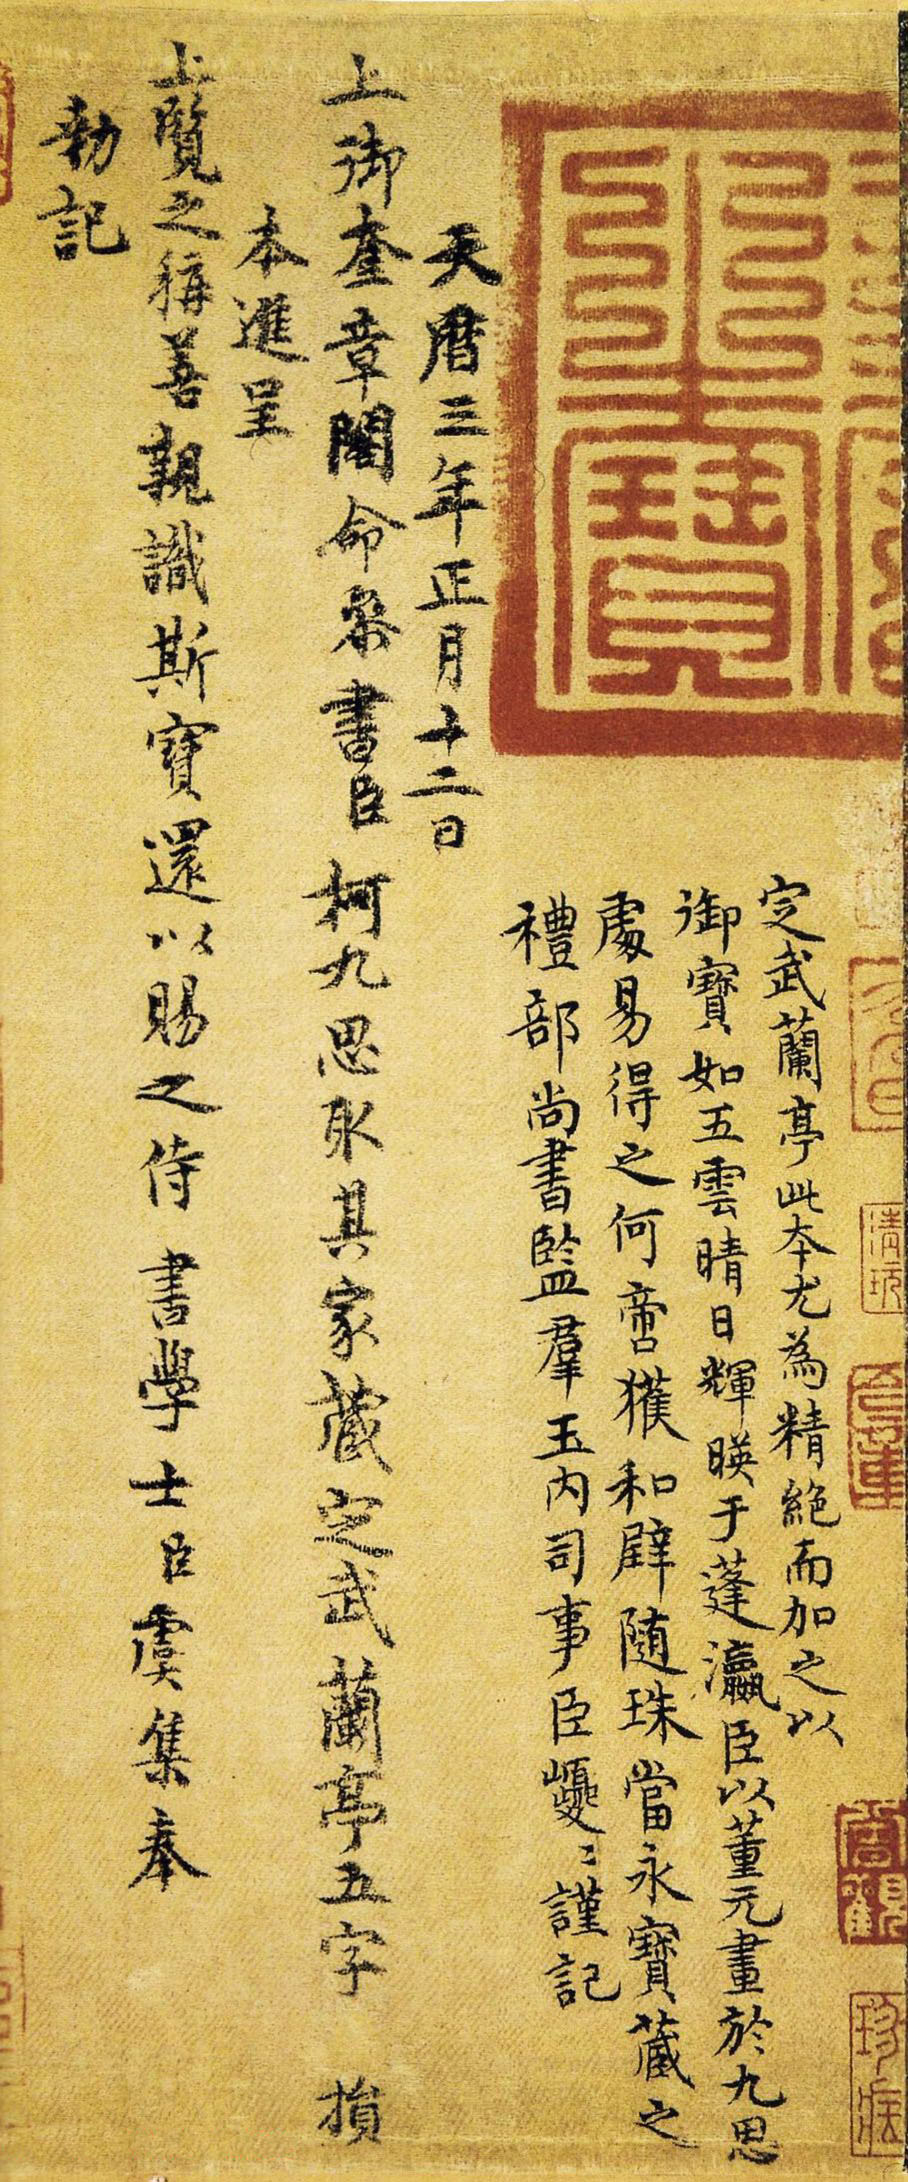 定武蘭亭此本尤為精絶而加之以
御寶如五雲晴日輝暎于蓬瀛臣以董元畫於九思
處易得之何啻獲和璧随珠當永寶藏之
禮部尚書監羣玉内司事臣巙〻謹記
天暦三年正月十二日
上御奎章閣命叅書臣柯九思取其家藏定武蘭亭五字損
本進呈
上覽之稱善親識斯寶還以賜之侍書學士臣虞集奉
勑記